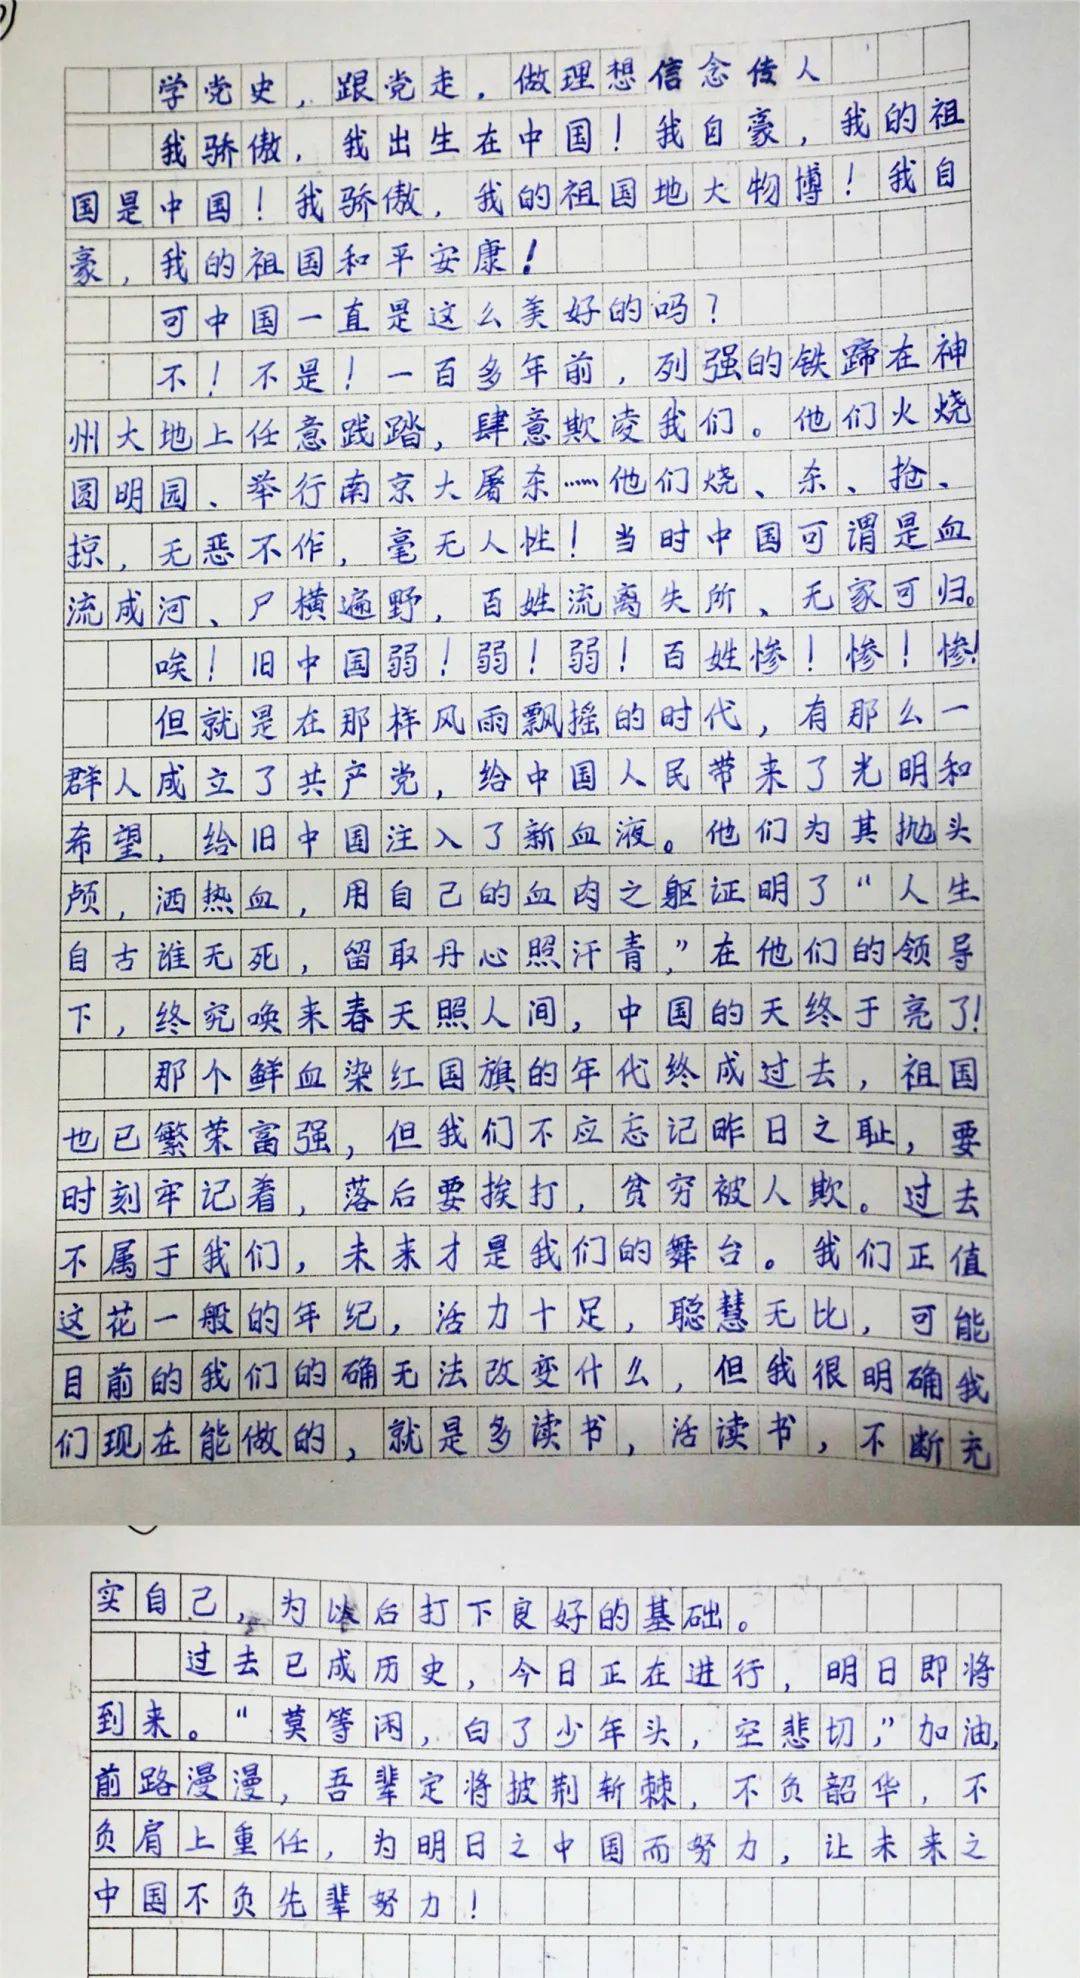 学党史，跟党走，做理想信念传人
我骄傲，我出生在中国！我自豪，我的祖
国是中国！我骄傲，我的祖国地大物博！我自
豪，我的祖国和平安康！
可中国一直是这么美好的吗？
不！不是！一百多年前，列强的铁蹄在神
州大地上任意践踏，肆意欺凌我们。他们火烧
圆明园、举行南京大屠杀……他们烧、杀、抢、
掠，无恶不作，毫无人性！当时中国可谓是血
流成河、尸横遍野，百姓流离失所、无家可归。
唉！旧中国弱！弱！弱！百姓惨！惨！惨！
但就是在那样风雨飘摇的时代，有那么一
群人成立了共产党，给中国人民带来了光明和
希望，给旧中国注入了新血液。他们为其抛头
颅，洒热血，用自己的血肉之躯证明了“人生
自古谁无死，留取丹心照汗青，”在他们的领导
下，终究唤来春天照人间，中国的天终于亮了！
那个鲜血染红国旗的年代终成过去，祖国
也已繁荣富强，但我们不应忘记昨日之耻，要
时刻牢记着，落后要挨打，贫穷被人欺。过去
不属于我们，未来才是我们的舞台。我们正值
这花一般的年纪，活力十足，聪慧无比，可能
目前的我们的确无法改变什么，但我很明确我
们现在能做的，就是多读书，活读书，不断充
实自己，为以后打下良好的基础。
过去已成历史，今日正在进行，明日即将
到来。“莫等闲，白了少年头，空悲切，”加油，
前路漫漫，吾辈定将披荆斩棘，不负韶华，不
负肩上重任，为明日之中国而努力，让未来之
中国不负先辈努力！